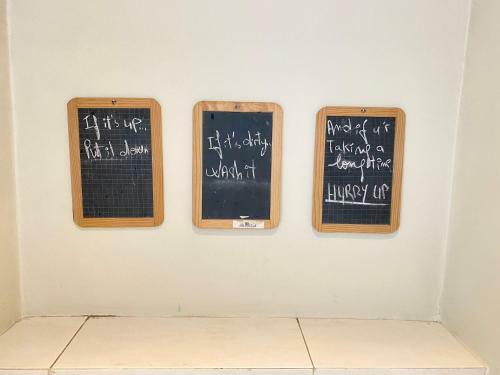 If it's up...
Put it down
If it's dirty.
wash it
And if u'r
Taking a
long time
HURRY UP